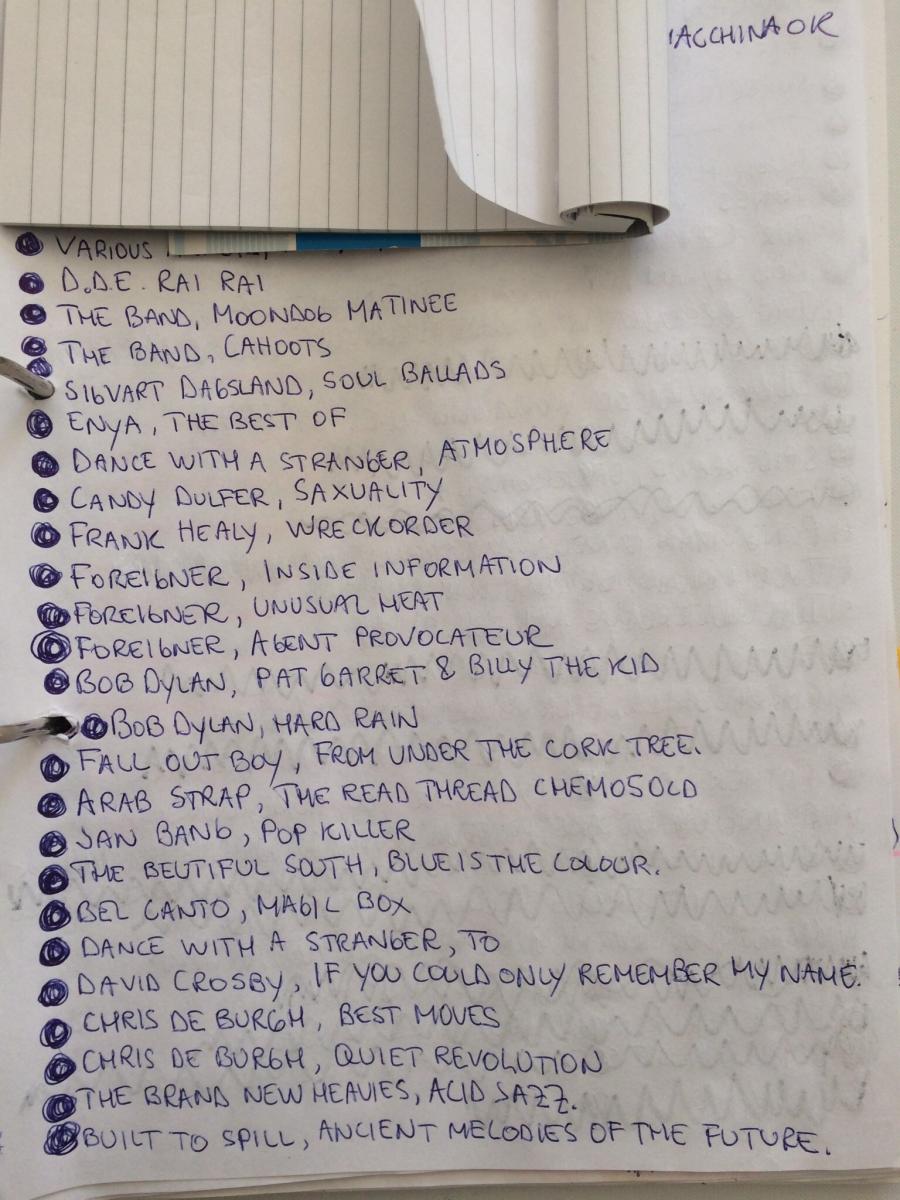 VARIOUS
D.D.E. RAI RAI
THE BAND, MOONDOG MATINEE
THE BAND, CAHOOTS
SIGVART DAGSLAND, SOUL BALLADS
ENYA, THE BEST OF
DANCE WITH A STRANGER, ATMOSPHERE
CANDY DULFER, SAXUALITY
FRANK HEALY, WRECKORDER
FOREIGNER, INSIDE INFORMATION
FOREIGNER, UNUSUAL HEAT
FOREIGNER, AGENT PROVOCATEUR
BOB DYLAN, PAT GARRET & BILLY THE KID
BOB DYLAN, HARD RAIN
FALL OUT BOY, FROM UNDER THE CORK TREE.
ARAB STRAP, THE READ THREAD CHEMO5OLD
JAN BANG, POP KILLER
THE BEUTIFUL SOUTH, BLUE IS THE COLOUR.
BEL CANTO, MAGIC BOX
DANCE WITH A STRANGER, TO
DAVID CROSBY, IF YOU COULD ONLY REMEMBER MY NAME.
CHRIS DE BURGH, BEST MOVES
CHRIS DE BURGH, QUIET REVOLUTION
THE BRAND NEW HEAVIES, ACID JAZZ.
BUILT TO SPILL, ANCIENT MELODIES OF THE FUTURE.